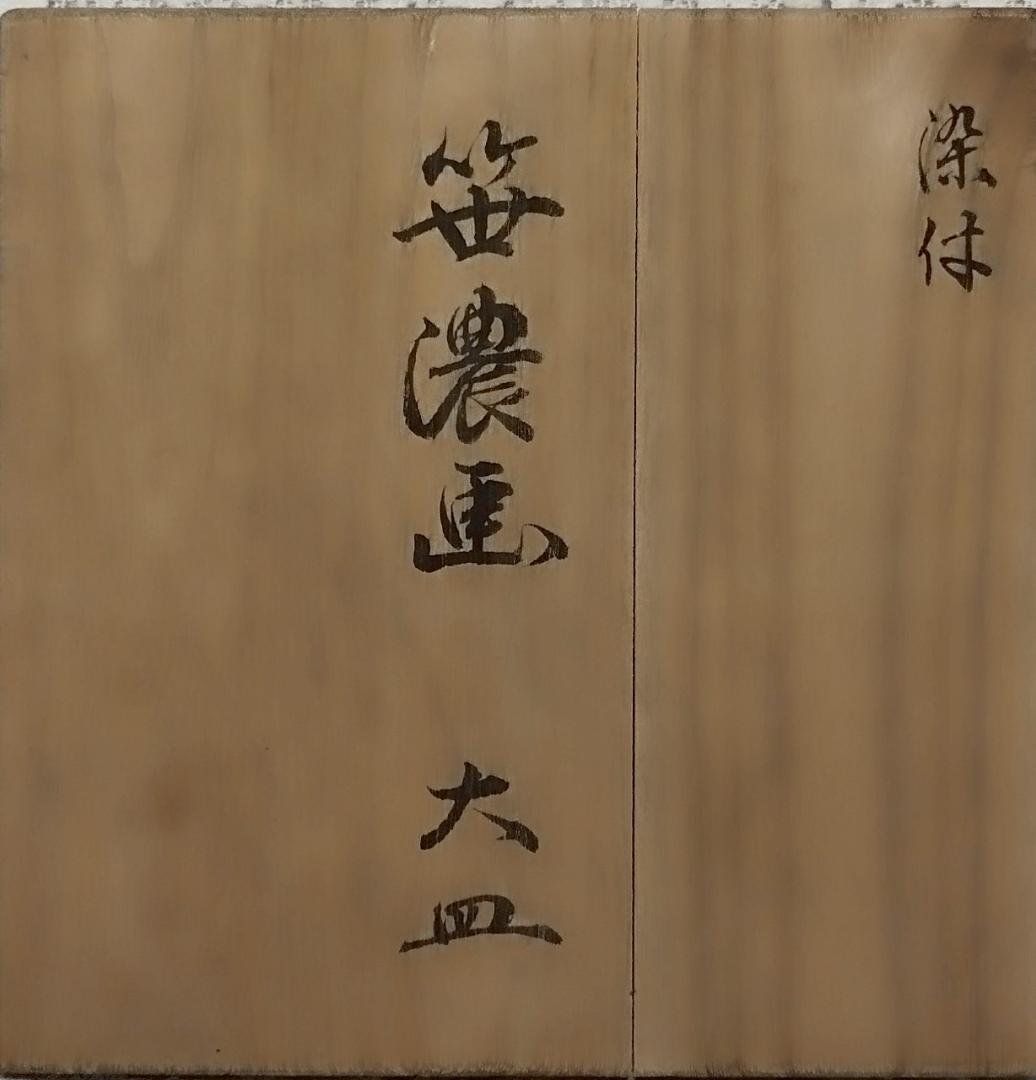 染付
笹濃画 大皿